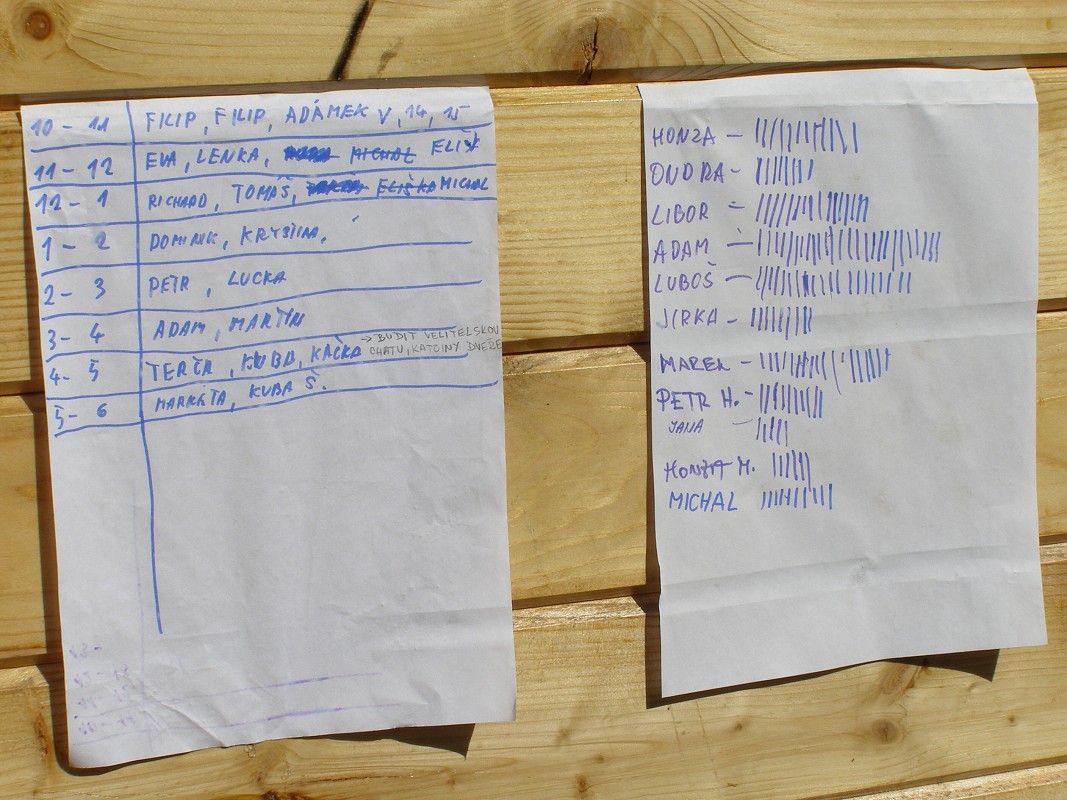 10 - 11 FILIP, FILIP, ADÁMEK V, 14, 15
11 - 12 EVA, LENKA, MICHAL ELIŠK
12 - 1 RICHARD, TOMÁŠ, ELIŠKA MICHAL
1 - 2 DOMINIK, KRYSTÝNA,
2 - 3 PETR, LUCKA
3 - 4 ADAM, MARTIN
→ BUDIT VELITELSKOU
CHATU, KATCINY DVEŘE
4 - 5 TERČA, KUBA, KAČKA
5 - 6 MARKÉTA, KUBA Š.
HONZA -
ONDRA -
LIBOR -
ADAM -
LUBOŠ -
JIRKA -
MAREK -
PETR H. -
JANA -
HONZA M.
MICHAL